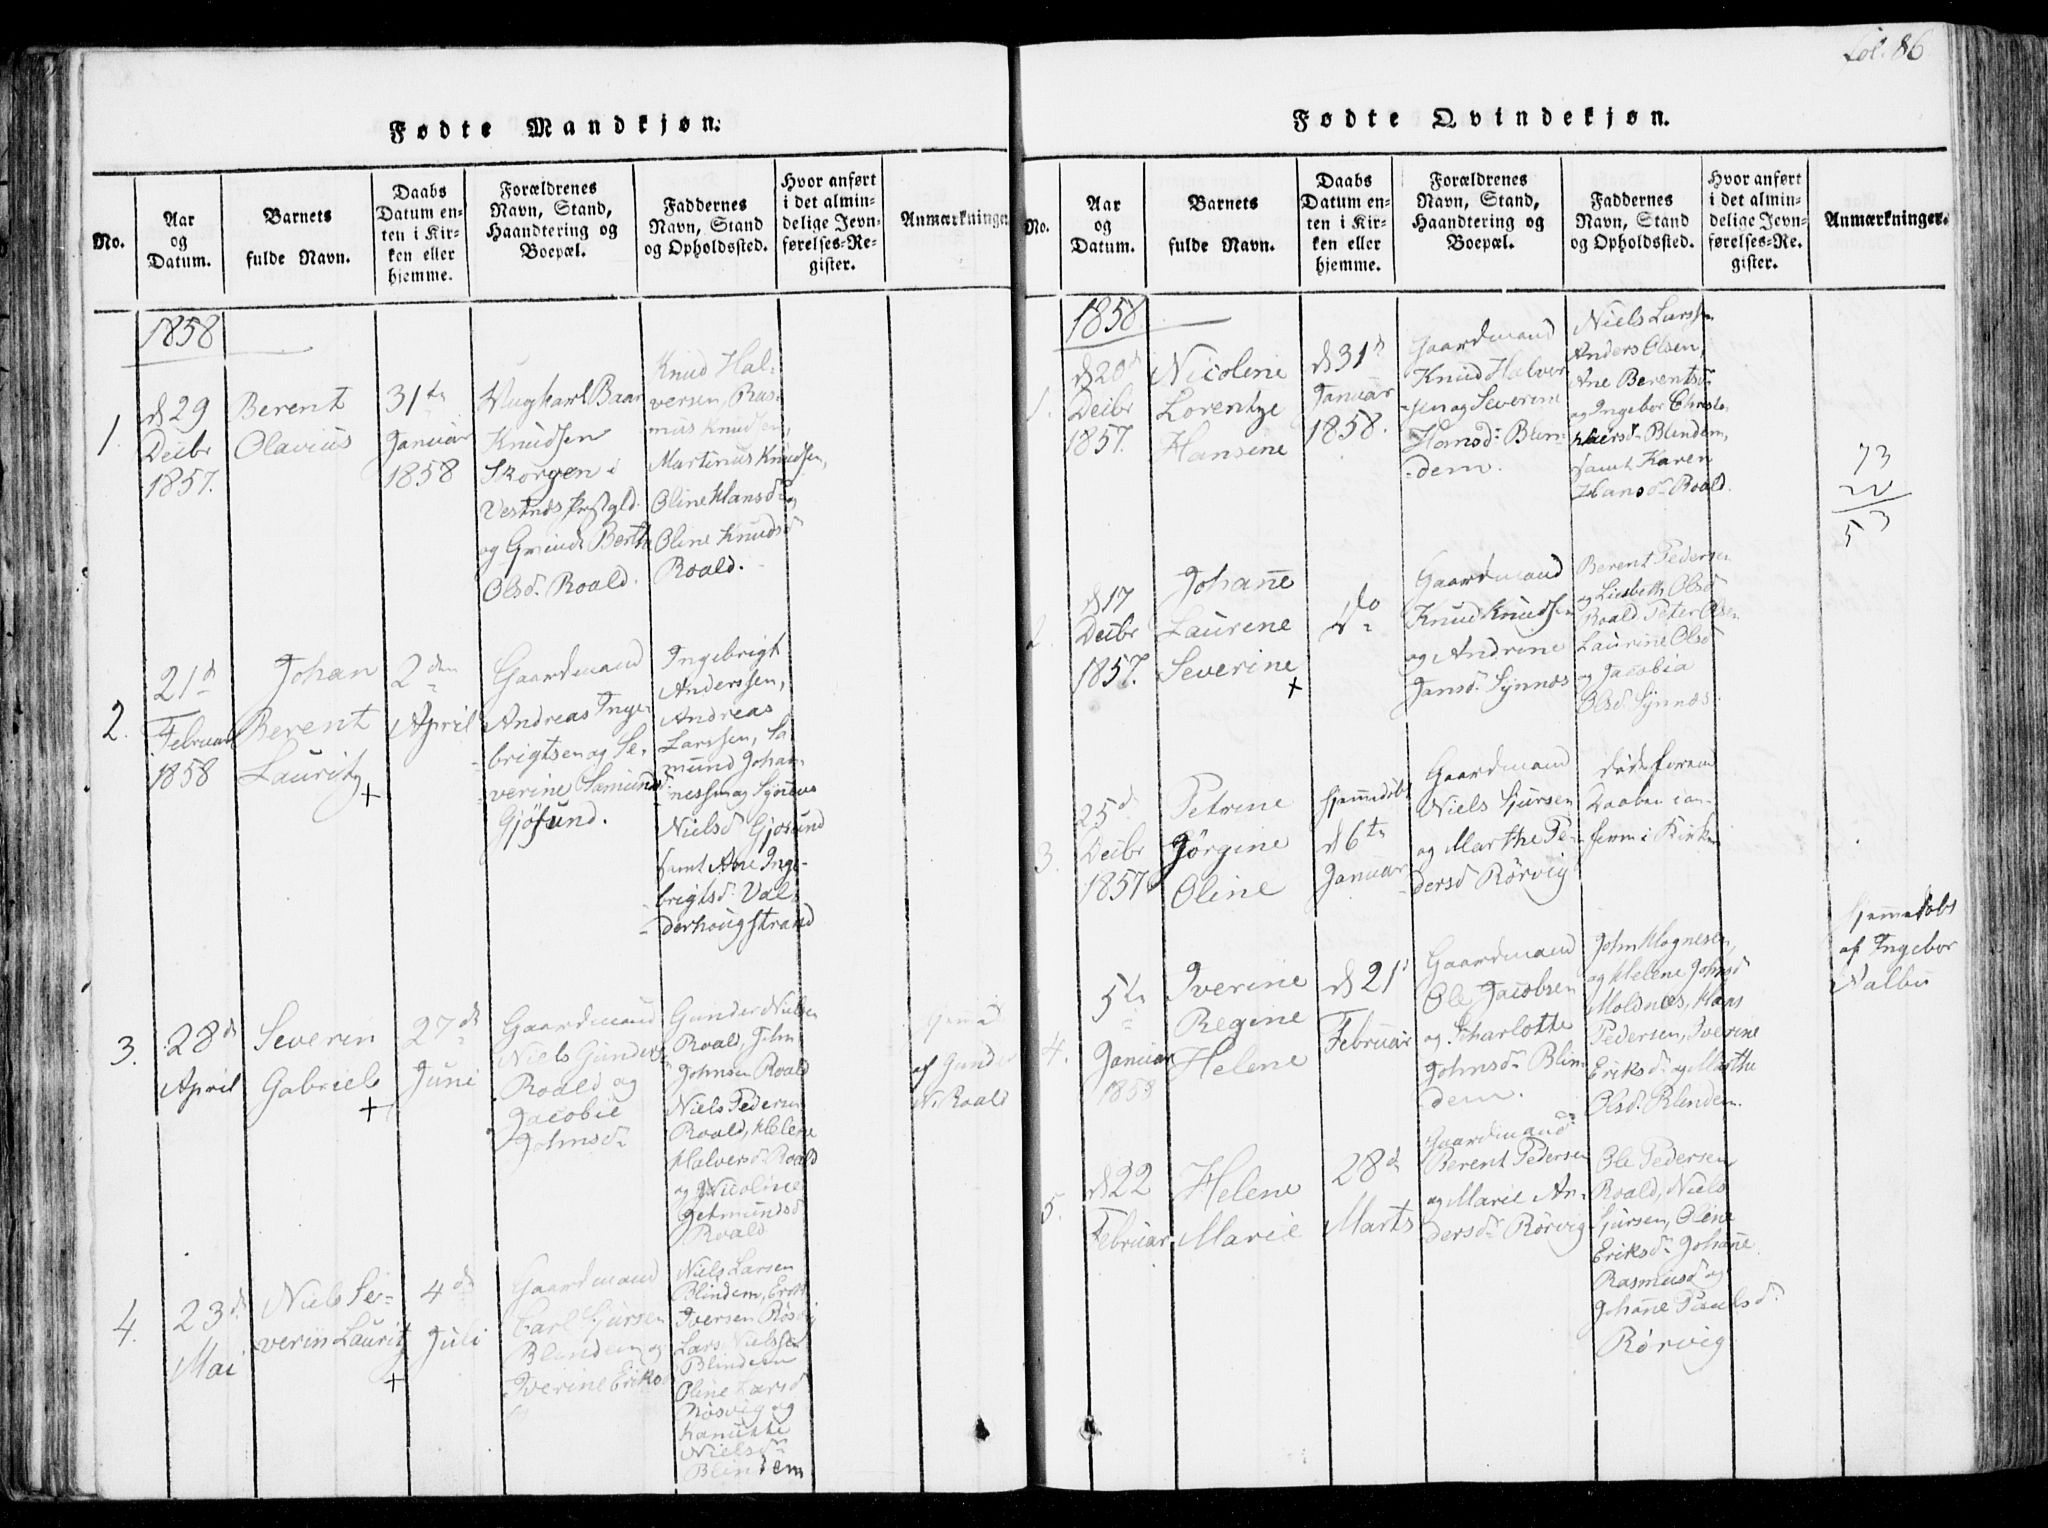 Fol. 86
Fødte Mandkjøn.
No.
Aar
og
Datum.
Barnets
fulde Navn.
Daabs
Datum en-
ten i Kir-
ken eller
hjemme.
Forældrenes
Navn, Stand,
Haandtering og
Boepæl.
Faddernes
Navn, Stand
og Opholdssted.
Hvor anført
i det almin-
delige Jevn-
førelses-Re-
gister.
Anmærkninger
1858
1.
d 29
Decbr
1857.
Berent
Olavius
31te
Januar
1858
Baar
Knudsen
Skorgen i
Vestnes
og Berthe
Olsd. Roald.
Knud Hal-
versen, Ras-
mus Knudsen,
Martinus Knudsen,
Oline Hansd og
Oline Knudsd
Roald.
2.
21d
Februar
1858
Johan
Berent
Lauritz
+
2den
April
Gaardmand
Andreas Inge-
brigtsen og Se-
verine Samunds
Gjøsund.
Ingebrigt
Anderssen,
Andreas
Larssen, Sa-
mund Johan-
nessen og
Nielsd Gjøsund
samt Ane Inge-
brigtsd. Val-
derhougstrand
3.
28d
April
Severin
Gabriel
+
27d
Juni
Gaardmand
Niels Gunders
Roald og
Jacobie
Johnsd
Gunder Nielsen
Roald, John
Johnsen Roald
Niels Pedersen
Roald, Helene
Halversd Roald
og Nicoline
Roald
af Gunder
N. Roald
4.
23d
Mai
Niels Se-
verin Lauritz
+
4d
Juli
Gaardmand
Carl Sjursen
Blindem og
Iverine Eriks
Niels Larsen
Blindem, Erik
Iversen
Lars Nielssen
Blindem
Oline Larsd
og
Nielsd
Blindem
Fødte Qvindekjøn.
No.
Aar
og
Datum.
Barnets
fulde Navn.
Daabs
Datum en-
ten i Kir-
ken eller
hjemme.
Forældrenes
Navn, Stand,
Haandtering og
Boepæl.
Faddernes
Navn, Stand
og Opholdssted.
Hvor anført
i det almin-
delige Jevn-
førelses-Re-
gister.
Anmærkninger.
1858
1.
d 20d
Decbr
1857.
Nicoline
Lorentze
Hansine
d 31d
Januar
1858.
Gaardmand
Knud Halver-
sen og Severine
Hansd. Blin-
dem.
Niels Larssen
Anders Olsen,
Ane Berentsd
og Ingebor Christo-
phersd. Blindem,
samt Karen
Hansd. Roald.
73
20
53
2.
d 17
Decbr
1857.
Johanne
Laurene
Severine
+
do
Gaardmand
Knud Knudsen
og Andrine
Jansd. Synnes
Berent Pedersen
og Liesbeth Olsd
Roald Peter Olsen
Laurine Olsd
og Jacobia
Olsd. Synnes.
3.
25d
Decbr
1857
Petrine
Jørgine
Oline
hjemmedøbt
d 6te
Januar
Gaardmand
Niels Sjursen
og Marthe Pe-
dersd Rørvig
døde forend
Daaben
i Kirken
4.
5te
Januar
1858
Iverine
Regine
Helene
d 21
Februar
Gaardmand
Ole Jacobsen
og Scharlotte
Johnsd. Blin-
dem.
John Mognesen,
og Helene Johnsd
Moldnes, Hans
Pedersen, Iverine
Eriksd. og Marthe
Olsd. Blindem.
hjemmedøbt
af Ingebor
Valbu
5.
d 22
Februar
Helene
Marie
28d
Marts
Gaardmand
Berent Pedersen
og Marie An-
dersd. Rørvig
Ole Pedersen
Roald, Niels
Sjursen, Oline
Eriksd. Johanne
Rasmusd og
Johanne Paulsd.
Rørvig